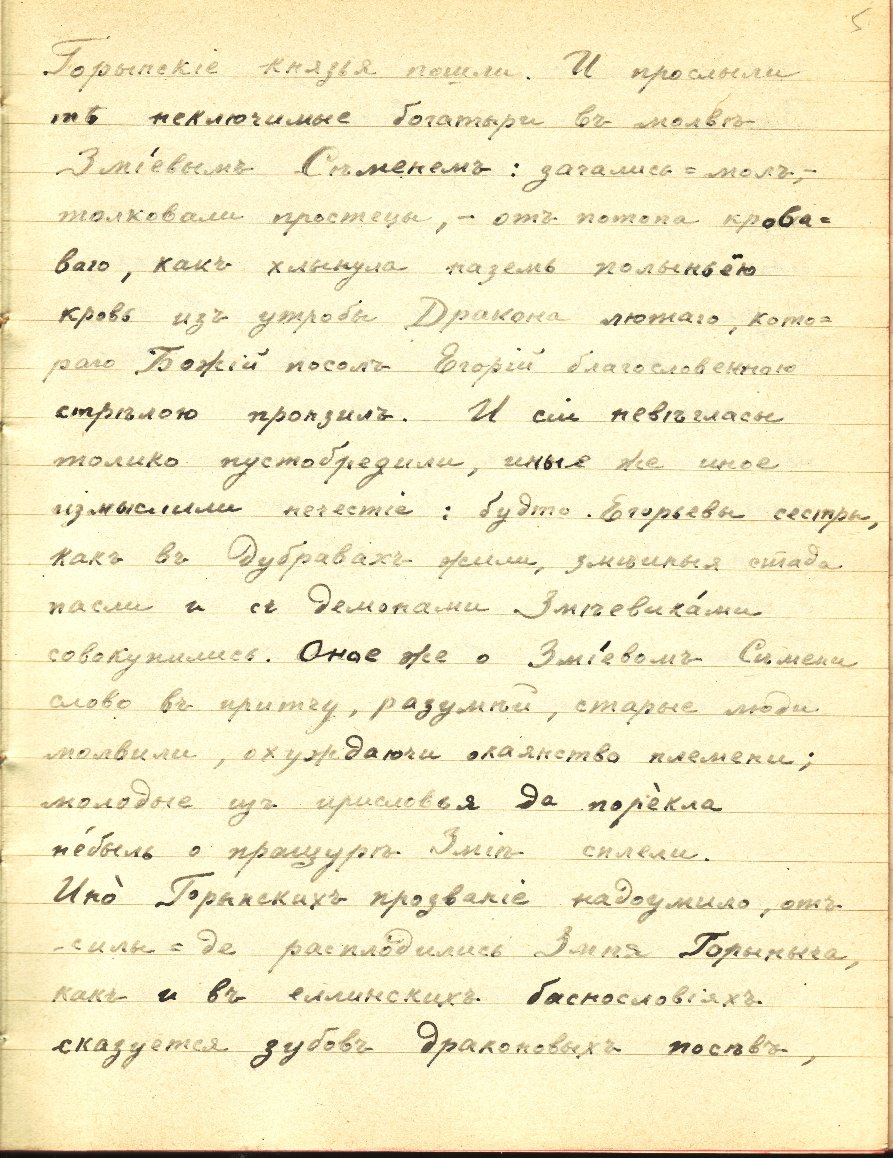 5
Горынскіе князья пошли. И прослыли
тѣ неключимые богатыри въ молвѣ
Зміевымъ Сѣменемъ: зачались=молъ,–
толковали простецы,– отъ потопа крова=
ваго, какъ хлынула наземь полыньёю
кровь изъ утробы Дракона лютаго, кото=
раго Божій посолъ Егорій благословенною
стрѣлою пронзилъ. И сіи невѣгласы
толико пустобредили, иные же иное
измыслили нечестіе: будто Егорьевы сестры,
какъ въ дубравахъ жили, змѣиныя стада
пасли и съ демонами Змѣевика́ми
совокупились. Оное же о Змі́евомъ Сѣмени
слово въ притчу, разумѣй, старые люди
молвили, охуждаючи окаянство племени;
молодые изъ присловья да порѐкла
не́быль о пращурѣ Зміѣ сплели.
Ино̀ Горынскихъ прозваніе надоумило, отъ
-силы=де расплодились Змѣя Горыныча,
какъ и въ еллинскихъ баснословіяхъ
сказуется зубовъ драконовыхъ посѣвъ,